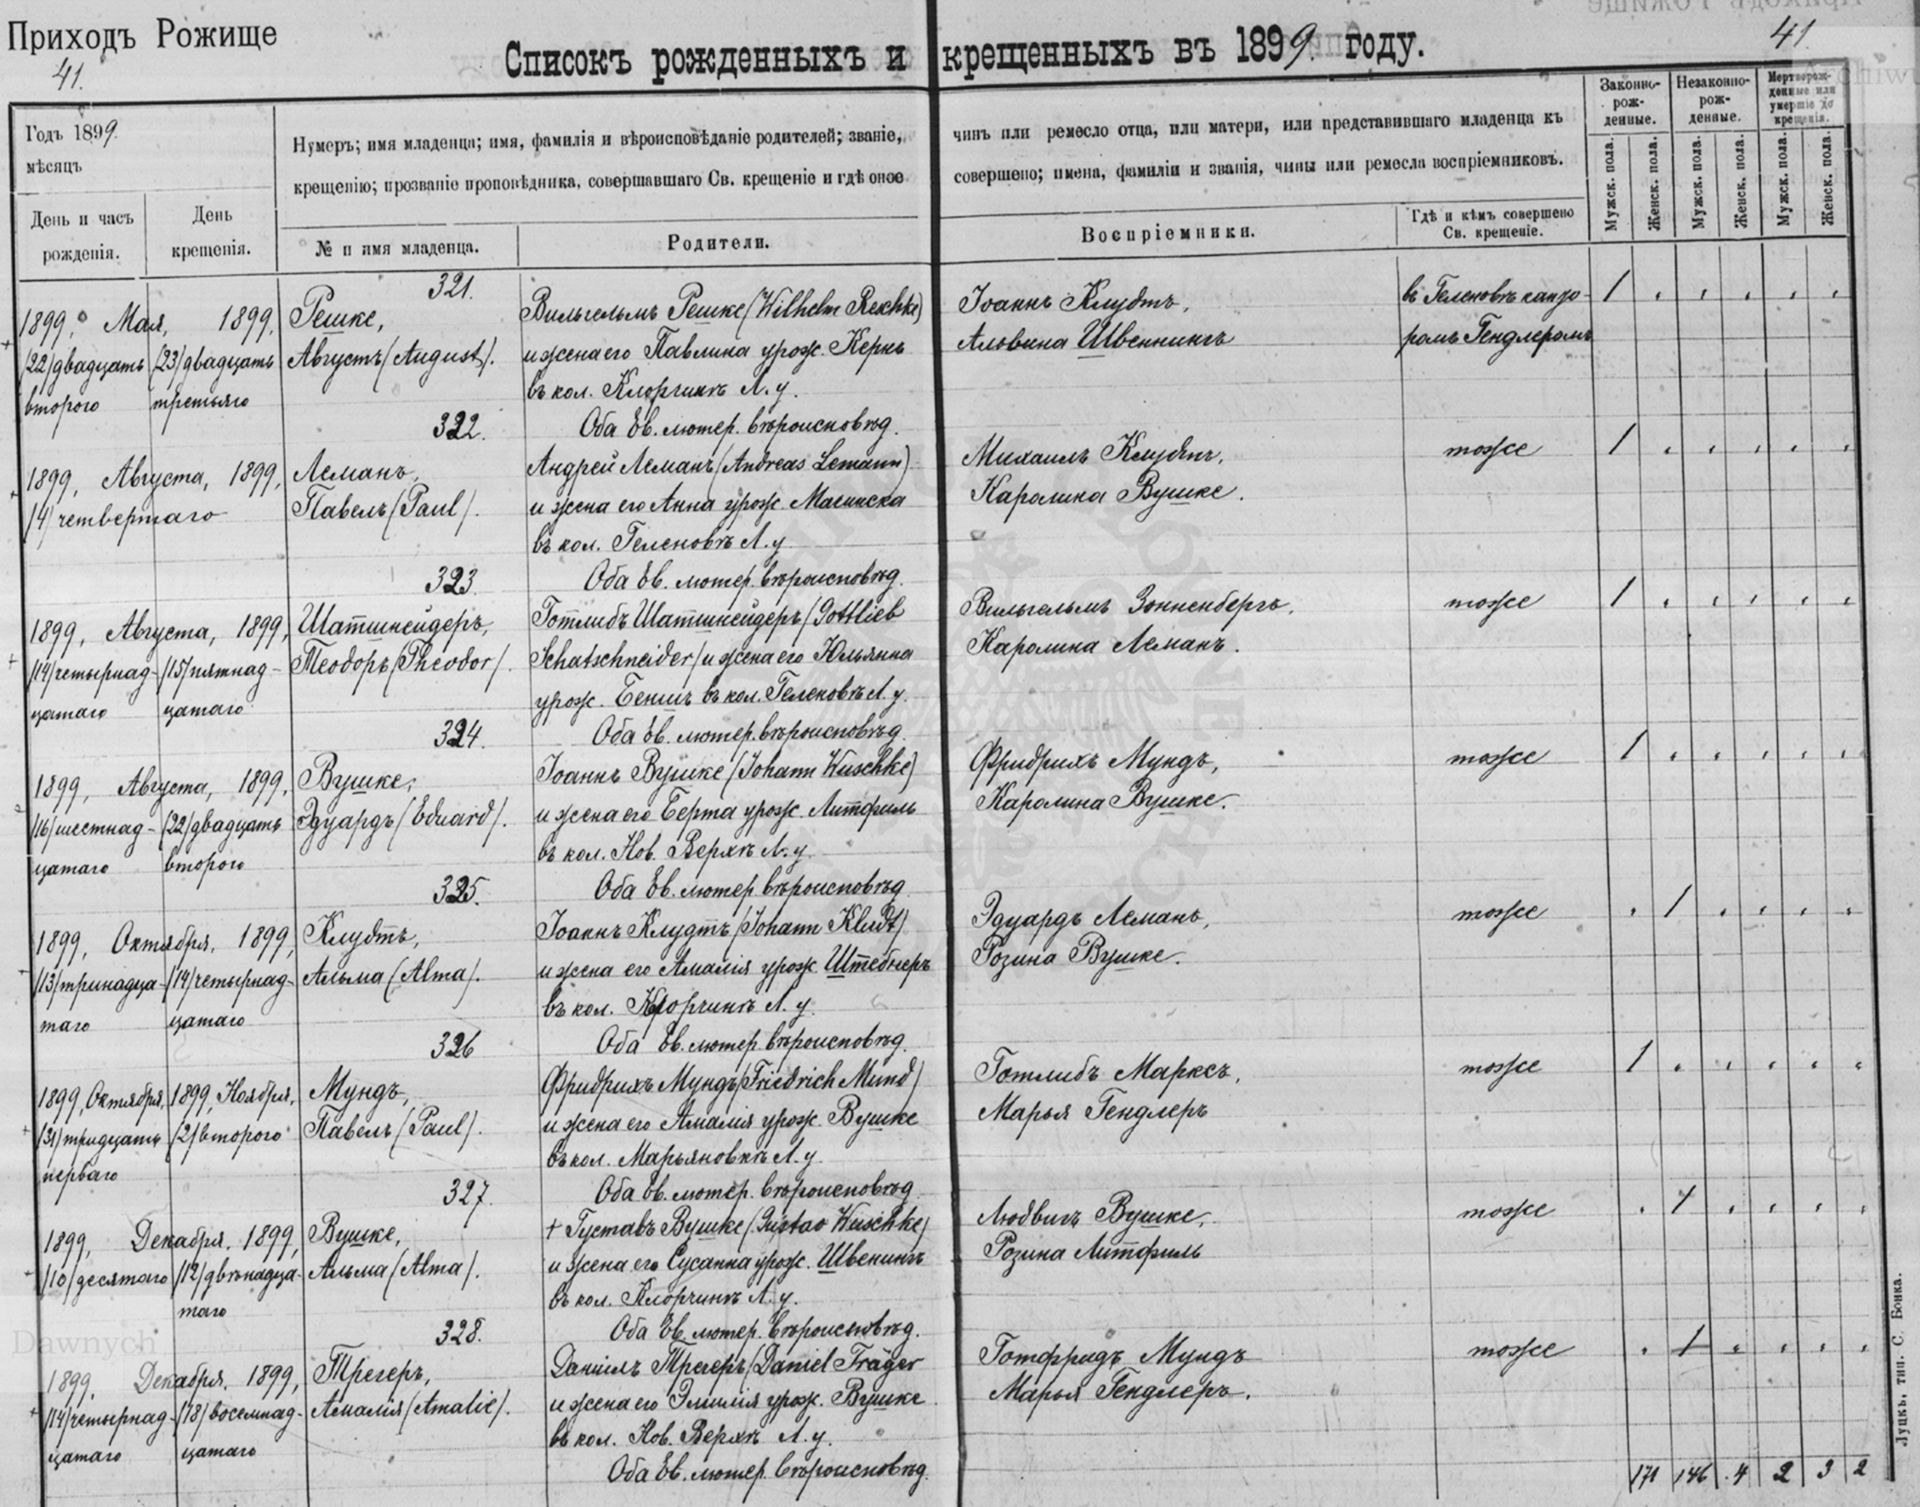 Приходъ Рожище
41.
41.
Списокъ рожденныхъ и крещенныхъ въ 1899. году.
Годъ 1899.
мѣсяцъ
День и часъ рожденія.
День крещенія.
Нумеръ; имя младенца; имя, фамилія и вѣроисповѣданіе родителей; званіе,
крещенію; прозваніе проповѣдника, совершавшаго Св. крещеніе и гдѣ оное
№ и имя младенца.
Родители.
чинъ или ремесло отца, или матери, или представившаго младенца къ
совершено; имена, фамиліи и званія, чины или ремесла воспріемниковъ.
Воспріемники.
Гдѣ и кѣмъ совершено
Св. крещеніе.
Законно-
рож-
денные.
Незаконно-
рож-
денные.
Мертворож-
денные или
умершіе до
крещенія.
Мужск. пола.
Женск. пола.
Мужск. пола.
Женск. пола.
Мужск. пола.
Женск. пола.
321.
1899, Мая, 1899,
/22/ двадцать /23/ двадцать
второго третьяго
Решке,
Августъ /August/.
Вильгельмъ Решке /Wilhelm Reschke/
и жена его Павлина урож. Кернъ
въ кол. Клорчинѣ Л. у.
Оба Ев. лютер. вѣроисповѣд.
Іоаннъ Клудтъ,
Альвина Швеннингъ
въ Геленовѣ канто-
ромъ Гендлеромъ
1
322.
1899, Августа, 1899,
/4/ четвертаго
Леманъ,
Павелъ /Paul/.
Андрей Леманъ /Andreas Lemann/
и жена его Анна урож. Масинска
въ кол. Геленовѣ Л. у.
Оба Ев. лютер. вѣроисповѣд.
Михаилъ Клудтъ,
Каролина Вушке.
тоже
1
323.
1899, Августа, 1899,
/14/ четырнад- /15/ пятнад-
цатаго цатаго
Шатшнейдеръ,
Теодоръ /Theodor/.
Готлибъ Шатшнейдеръ /Gottlieb
Schatschneider/ и жена его Юльянна
урож. Беншъ въ кол. Геленовѣ Л. у.
Оба Ев. лютер. вѣроисповѣд.
Вильгельмъ Зонненбергъ,
Каролина Леманъ.
тоже
1
324.
1899, Августа, 1899,
/16/ шестнад- /22/ двадцать
цатаго второго
Вушке,
Эдуардъ /Eduard/.
Іоаннъ Вушке /Johann Wuschke/
и жена его Берта урож. Литфиль
въ кол. Нов. Верхѣ Л. у.
Оба Ев. лютер. вѣроисповѣд.
Фридрихъ Мундъ,
Каролина Вушке.
тоже
1
325.
1899, Октября, 1899,
/13/ тринадца- /14/ четырнад-
таго цатаго
Клудтъ,
Альма /Alma/.
Іоаннъ Клудтъ /Johann Kludt/
и жена его Амалія урож. Штебнеръ
въ кол. Клорчинѣ Л. у.
Оба Ев. лютер. вѣроисповѣд.
Эдуардъ Леманъ,
Розина Вушке.
тоже
1
326
1899, Октября, 1899, Ноября,
/31/ тридцать /2/ второго
перваго
Мундъ,
Павелъ /Paul/.
Фридрихъ Мундъ /Friedrich Mund/
и жена его Амалія урож. Вушке
въ кол. Марьяновкѣ Л. у.
Оба Ев. лютер. вѣроисповѣд.
Готлибъ Марксъ,
Марья Гендлеръ
тоже
1
327.
1899, Декабря, 1899,
/10/ десятаго /12/ двѣнадца-
таго
Вушке,
Альма /Alma/.
+ Густавъ Вушке /Gustav Wuschke/
и жена его Сусанна урож. Швенингъ
въ кол. Клорчинѣ Л. у.
Оба Ев. лютер. вѣроисповѣд.
Людвигъ Вушке,
Розина Литфиль
тоже
1
328.
1899, Декабря, 1899,
/14/ четырнад- /18/ восемнад-
цатаго цатаго
Трегеръ,
Амалія /Amalie/.
Даніилъ Трегеръ /Daniel Träger
и жена его Эмилія урож. Вушке
въ кол. Нов. Верхѣ Л. у.
Оба Ев. лютер. вѣроисповѣд.
Готфридъ Мундъ
Марья Гендлеръ.
тоже
1
171 146 4 2 3 2
Луцкъ, тип. С. Бонка.
Dawnych